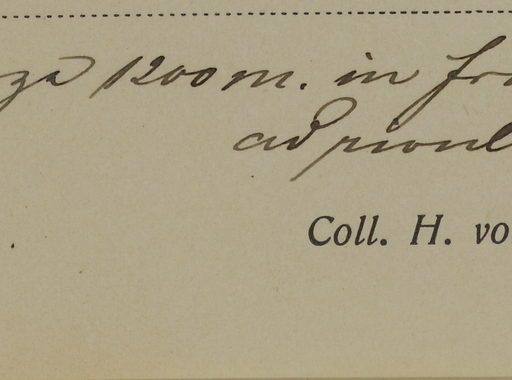 za 1200 m. in fru
ad rionl
Coll. H. vo